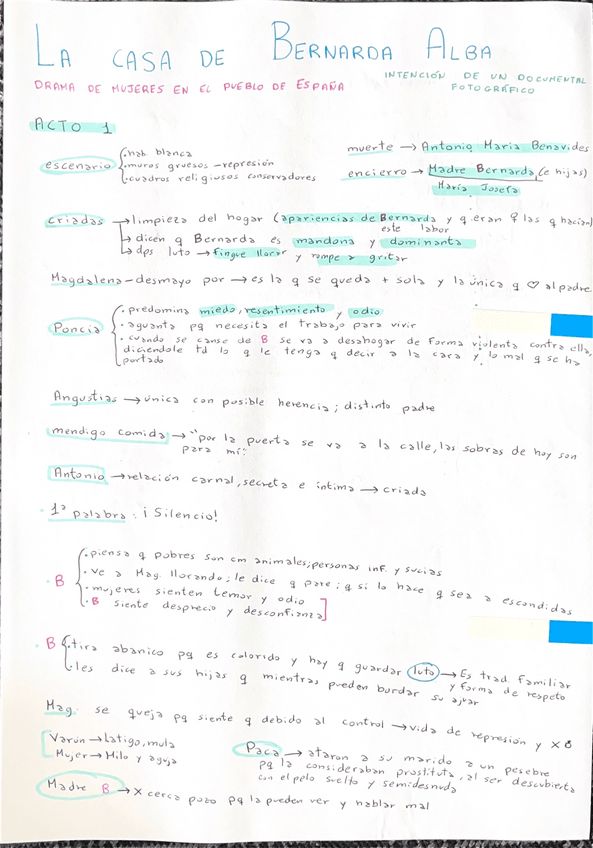 LA CASA DE BERNARDA ALBA
DRAMA DE MUJERES EN EL PUEBLO DE ESPAÑA
INTENCIÓN DE UN DOCUMENTAL
FOTOGRÁFICO
ACTO 1
escenario
· hab. blanca
· muros gruesos - represión
· cuadros religiosos conservadores
muerte → Antonio Maria Benavides
encierro → Madre Bernarda (e hijas)
María Josefa
criadas → limpieza del hogar (apariencias de Bernarda y q eran ♀ las q hacían)
este labor
↳ dicen q Bernarda es mandona y dominanta
↳ dps luto → fingue llorar y rompe a gritar
Magdalena - desmayo por → es la q se queda + sola y la única q ♡ al padre
Poncia
· predomina miedo, resentimiento y odio
· aguanta pq necesita el trabajo para vivir
· cuando se canse de B se va a desahogar de forma violenta contra ella,
diciendole td lo q le tenga q decir a la cara y lo mal q se ha
portado
Angustias → única con posible herencia; distinto padre
mendigo comida → "por la puerta se va a la calle, las sobras de hoy son
para mí"
Antonio → relación carnal, secreta e íntima → criada
· 1ª palabra: ¡Silencio!
· B
· piensa q pobres son cm animales; personas inf. y sucias
· ve a Mag. llorando; le dice q pare; q si lo hace q sea a escondidas
· mujeres sienten temor y odio
· B siente desprecio y desconfianza
· B
· tira abanico pq es colorido y hay q guardar luto → Es trad. familiar
y forma de respeto
· les dice a sus hijas q mientras pueden bordar su ajuar
Mag. se queja pq siente q debido al control → vida de represión y x B
Varón → Latigo, mula
Mujer → Hilo y aguja
Paca → ataron a su marido a un pesebre
pq la consideraban prostituta, al ser descubierta
con el pelo suelto y semidesnuda
Madre B → X cerca pozo pq la pueden ver y hablar mal